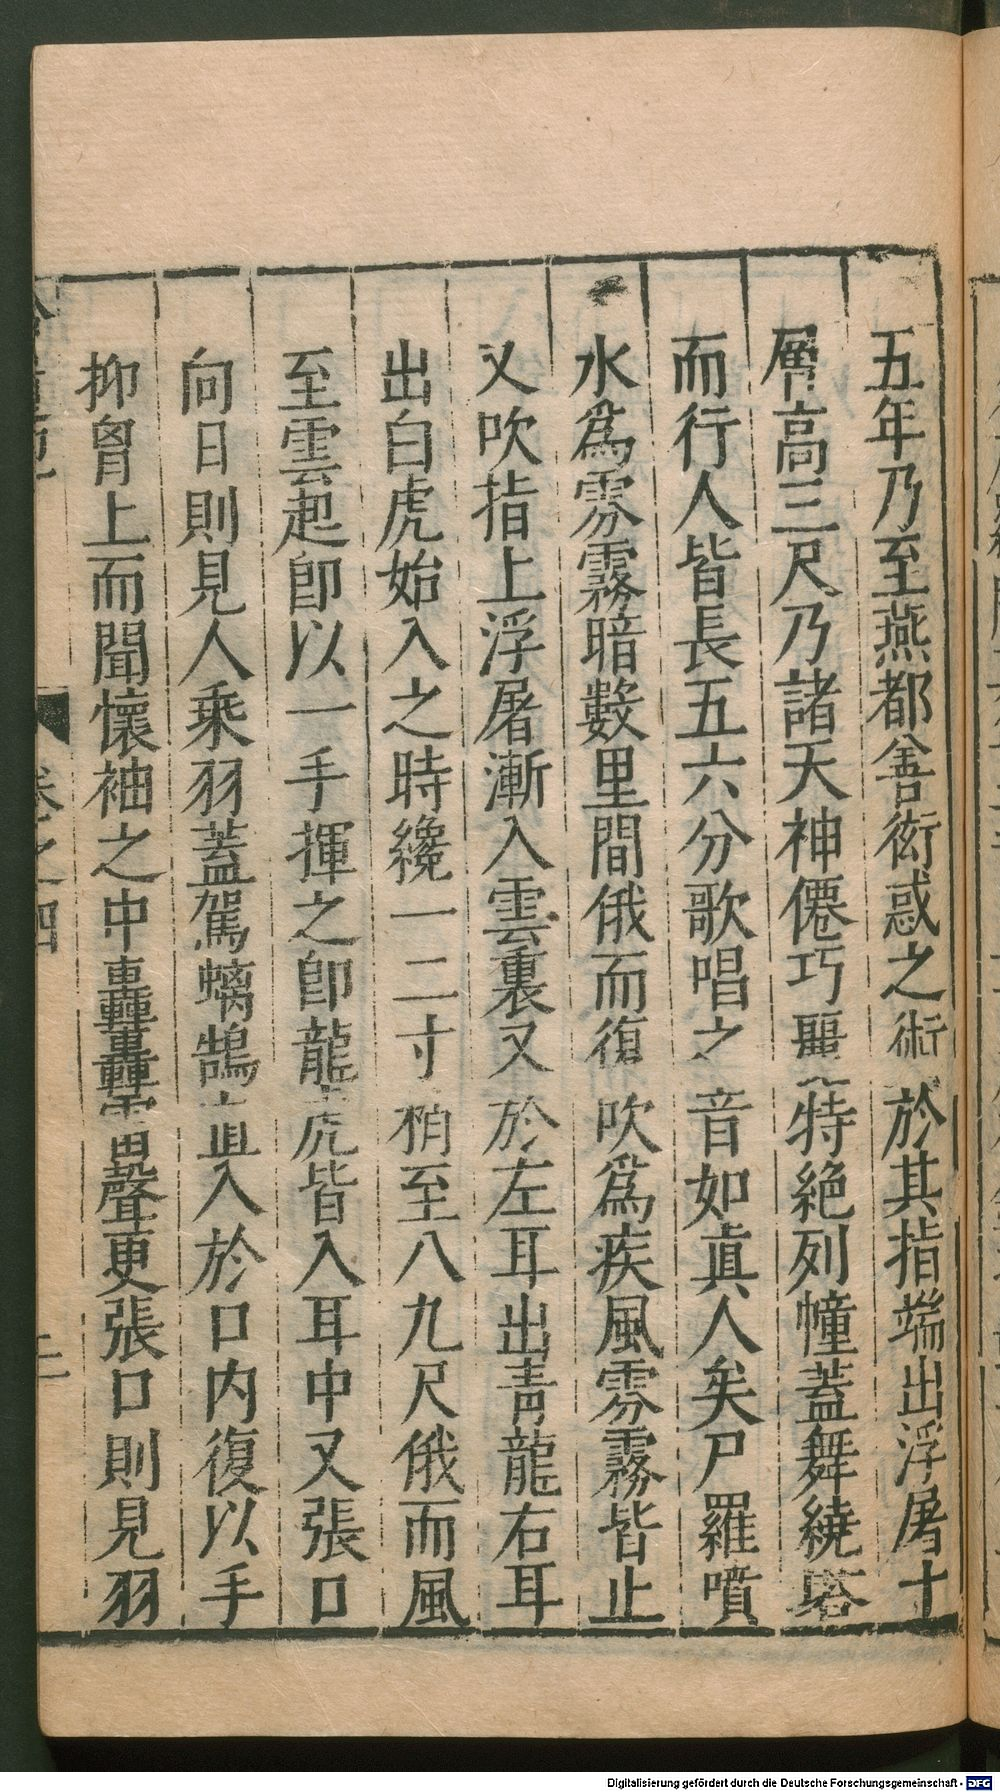 五年乃至燕都善衒惑之術於其指端出浮屠十
層高三尺乃諸天神僊巧麗特絶列幢蓋舞繞塔
而行人皆長五六分歌唱之音如眞人矣尸羅噴
水爲雰霧暗數里間俄而復吹爲疾風雰霧皆止
又吹指上浮屠漸入雲裏又於左耳出青龍右耳
出白虎始入之時纔一二寸稍至八九尺俄而風
至雲起卽以一手揮之卽龍虎皆入耳中又張口
向日則見人乘羽蓋駕螭鵠直入於口内復以手
抑胷上而聞懷袖之中轟轟雷聲更張口則見羽
卷之四
Digitalisierung gefördert durch die Deutsche Forschungsgemeinschaft - DFG